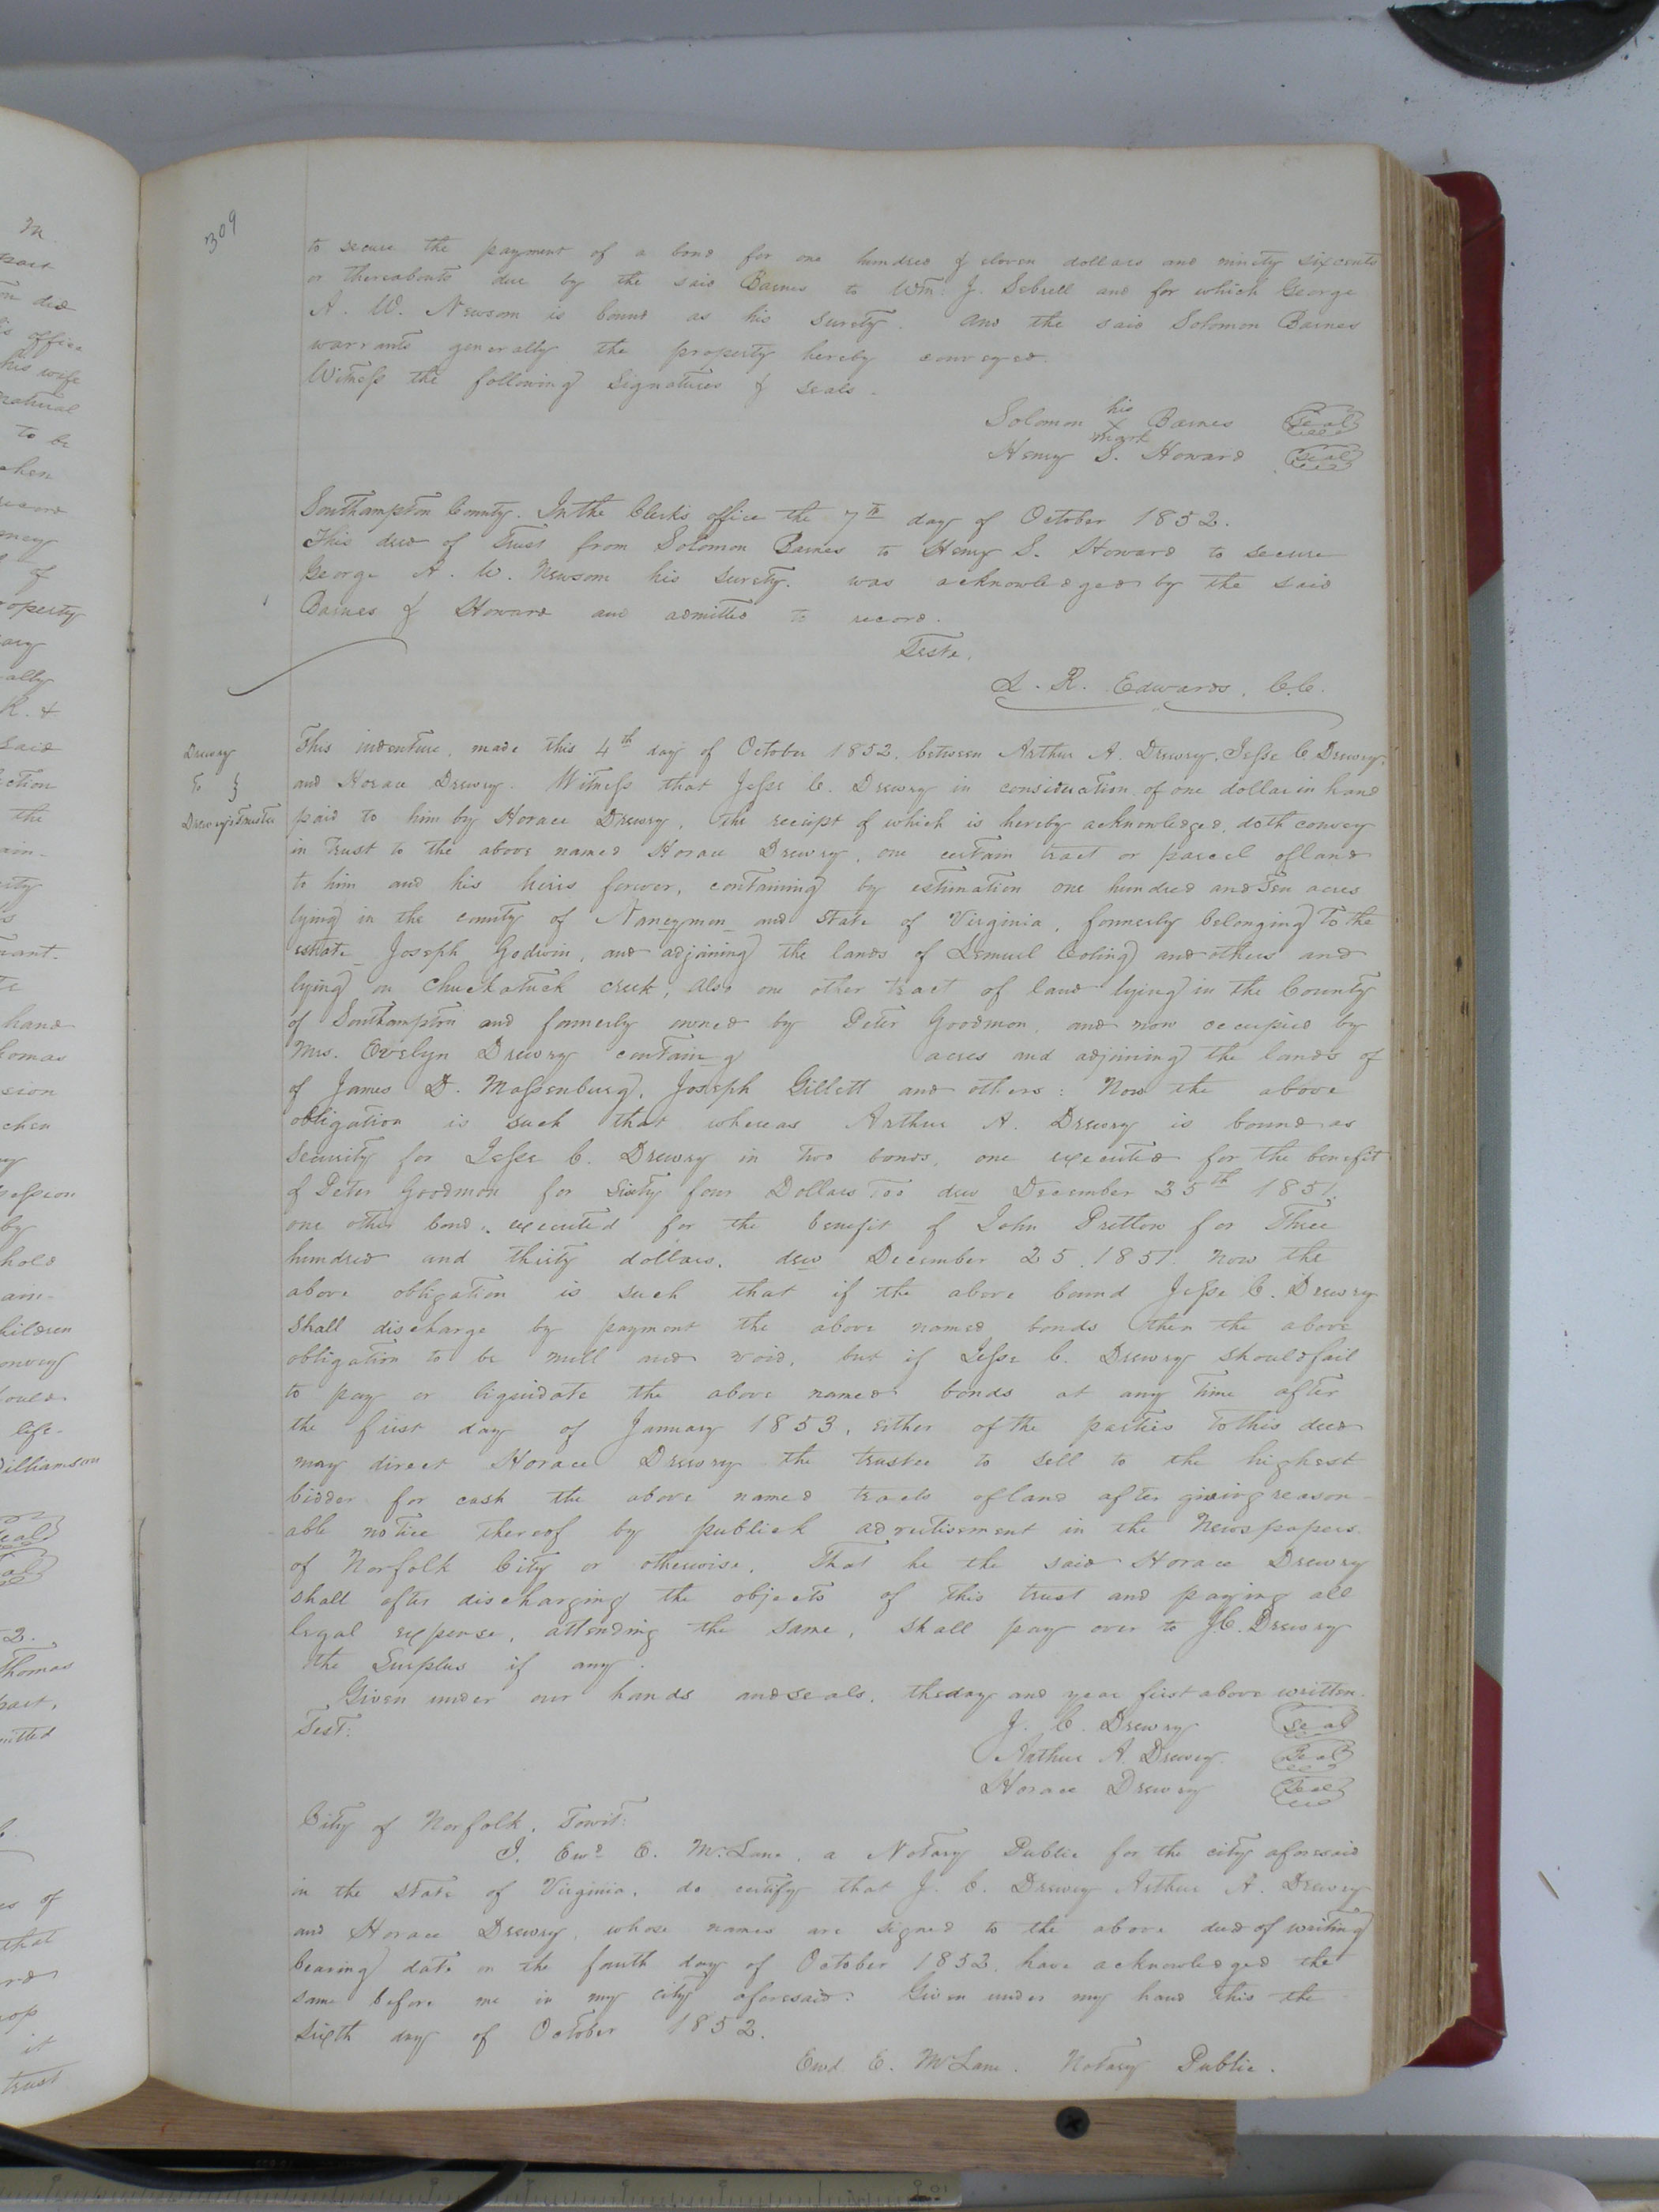 309
to secure the payment of a bond for one hundred & eleven dollars and ninity six cents
or thereabouts due by the said Barnes to Wm. J. Sebrell and for which George
A. W. Newsom is bound as his surety. and the said Solomon Barnes
warrants generally the property hereby conveyed.
Witness the following signatures & seals.
his
Solomon X Barnes seal
mark
Henry S. Howard seal
Southampton County. In the Clerk's office the 7th day of October 1852.
This deed of Trust from Solomon Barnes to Henry S. Howard to secure
George A. W. Newsom his surety. was acknowledged by the said
Barnes & Howard and admitted to record.
Teste.
L. R. Edwards, C.C.
Drewry
To }
Drewry's Trustee
This indenture, made this 4th day of October 1852, between Arthur A. Drewry, Jesse C. Drewry,
and Horace Drewry. Witness that Jesse C. Drewry in consideration of one dollar in hand
paid to him by Horace Drewry, the receipt of which is hereby acknowledged, doth convey
in Trust to the above named Horace Drewry, one certain tract or parcel of land
to him and his heirs forever, containing by estimation one hundred and Ten acres
lying in the county of Nancymon and State of Virginia, formerly belonging to the
estate Joseph Godwin, and adjoining the lands of Lemuel and others and
lying on Chuckatuck creek, also one other tract of land lying in the County
of Southampton and formerly owned by Peter Goodmon, and now occupied by
Mrs. Evelyn Drewry containg acres and adjoining the lands of
of James D. Massenburg, Joseph Gillett and others: Now the above
obligation is such that whereas Arthur A. Drewry is bound as
security for Jesse C. Drewry in two bonds, one executed for the benefit
of Peter Goodmon for Sixty four Dollars Too dew December 25th 1851,
one other bond, executed for the benefit of John Pretlow for Three
hundred and thirty dollars, dew December 25, 1851. now the
above obligation is such that if the above bound Jesse C. Drewry
shall discharge by payment the above named bonds then the above
obligation to be null and void, but if Jesse C. Drewry should fail
to pay or liquidate the above named bonds at any time after
the first day of January 1853, either of the parties to this deed
may direct Horace Drewry the trustee to sell to the highest
bidder for cash the above named tracts of land after giving reason-
able notice thereof by publick advertisement in the Newspapers
of Norfolk City or otherwise. That he the said Horace Drewry
shall after discharging the objects of this trust and paying all
legal expense, attending the same, shall pay over to J.C. Drewry
the Surplus if any.
Given under our hands and seals, the day and year first above written.
Test: J. C. Drewry seal
Arthur A. Drewry. seal
Horace Drewry seal
City of Norfolk, Towit:
I, Ewd E. McLane, a Notary Public for the city aforesaid
in the State of Virginia, do certify that J. C. Drewry Arthur A. Drewry
and Horace Drewry, whose names are signed to the above deed of writing
bearing date on the fourth day of October 1852, have acknowledged the
same before me in my city aforesaid: Given under my hand this the
sixth day of October 1852.
Ewd E. McLane. Notary Public.